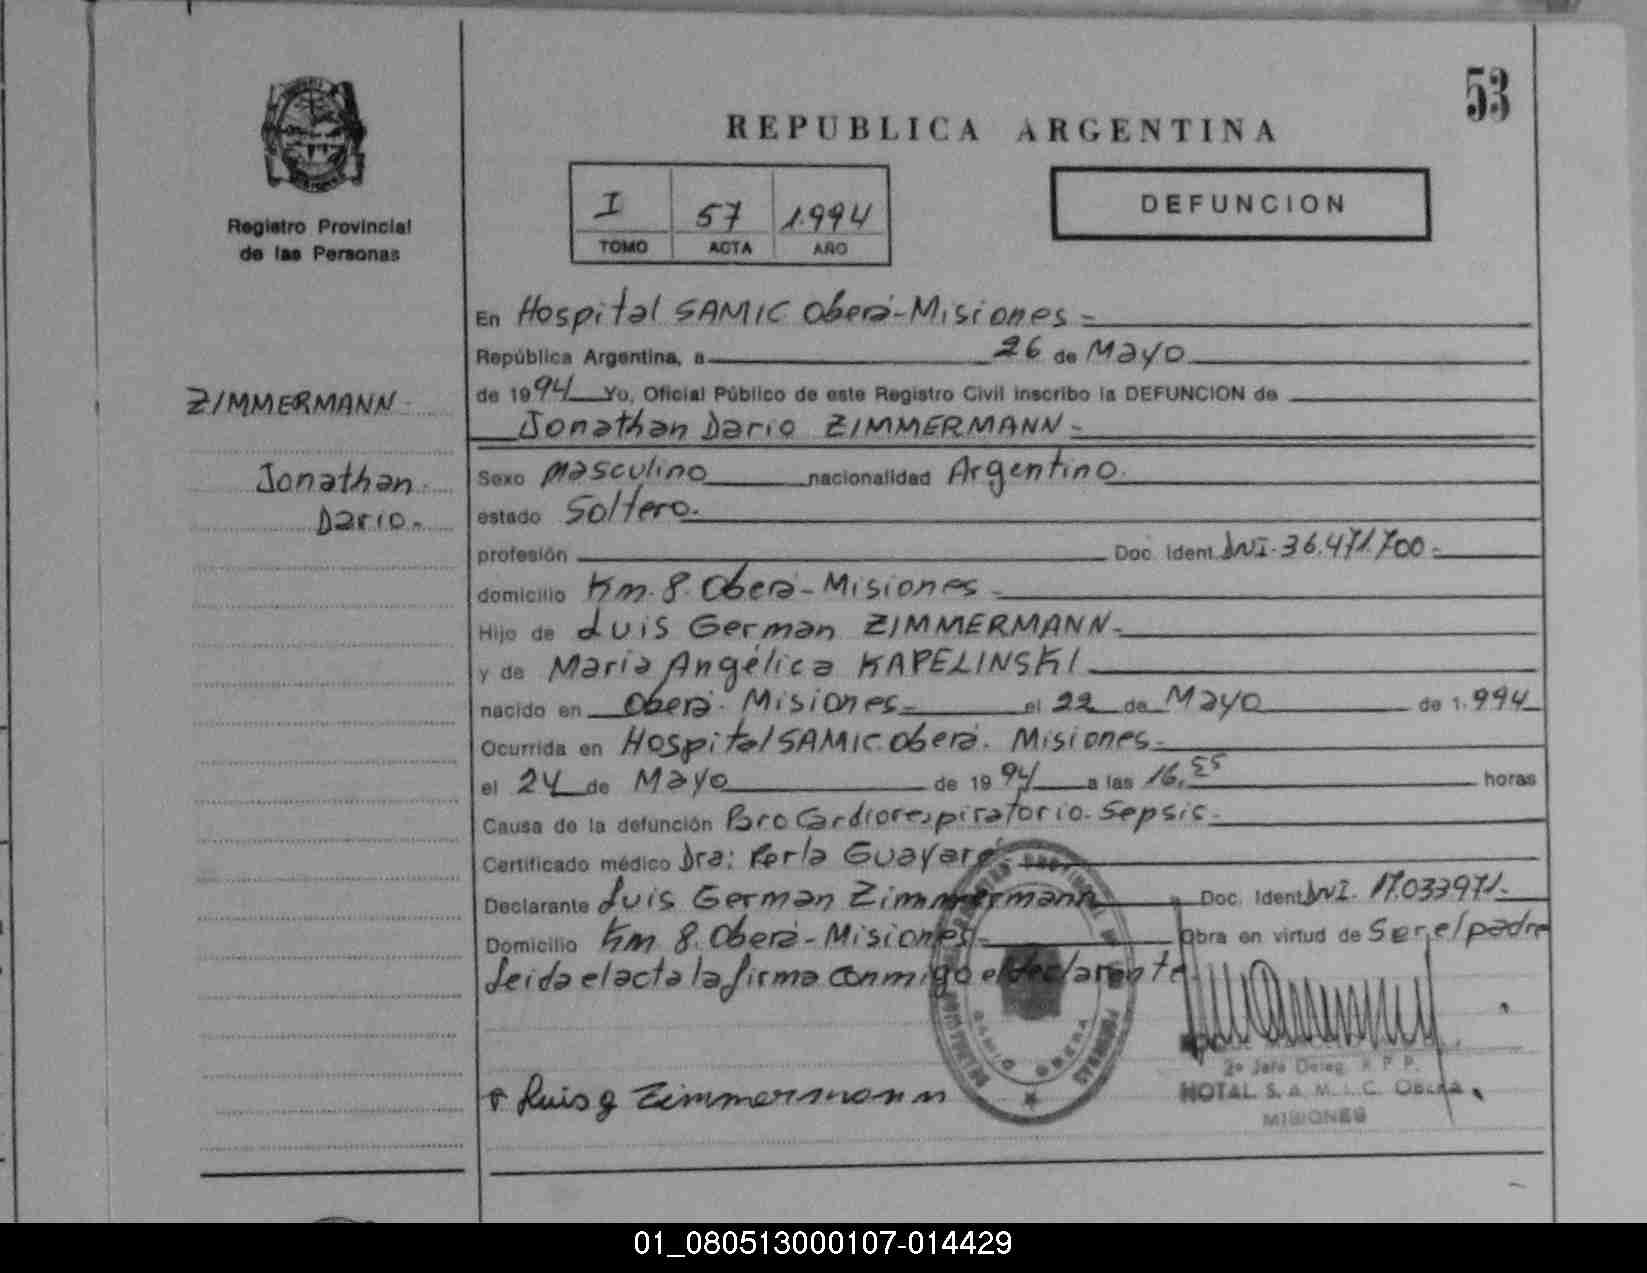 53
REPUBLICA ARGENTINA
Registro Provincial
de las Personas
I 57 1.994
TOMO ACTA AÑO
DEFUNCION
En Hospital SAMIC Oberá-Misiones -
República Argentina, a 26 de Mayo
de 1994 Yo, Oficial Público de este Registro Civil inscribo la DEFUNCION de
Jonathan Dario ZIMMERMANN -
ZIMMERMANN -
Jonathan
Dario.
Sexo Masculino nacionalidad Argentino.
estado Soltero.
profesión Doc. Ident. DNI. 36.471.700 -
domicilio Km. 8. Oberá - Misiones -
Hijo de Luis German ZIMMERMANN -
y de Maria Angélica KAPELINSKI
nacido en Oberá. Misiones - el 22 de Mayo de 1.994
Ocurrida en Hospital SAMIC Oberá. Misiones -
el 24 de Mayo de 1994 a las 16,55 horas
Causa de la defunción Paro Cardiorespiratorio. Sepsis -
Certificado médico Dra: Perla Guayaré.
Declarante Luis German Zimmermann Doc. Ident DNI. 17.033971.
Domicilio Km 8. Oberá - Misiones - Obra en virtud de Ser el padre
Leida el acta la firma conmigo el declarante
Luis g Zimmermann
2º Jefe Deleg. R. P. P.
HOTAL S. A. M. I. C. OBERA
MISIONES
01_080513000107-014429